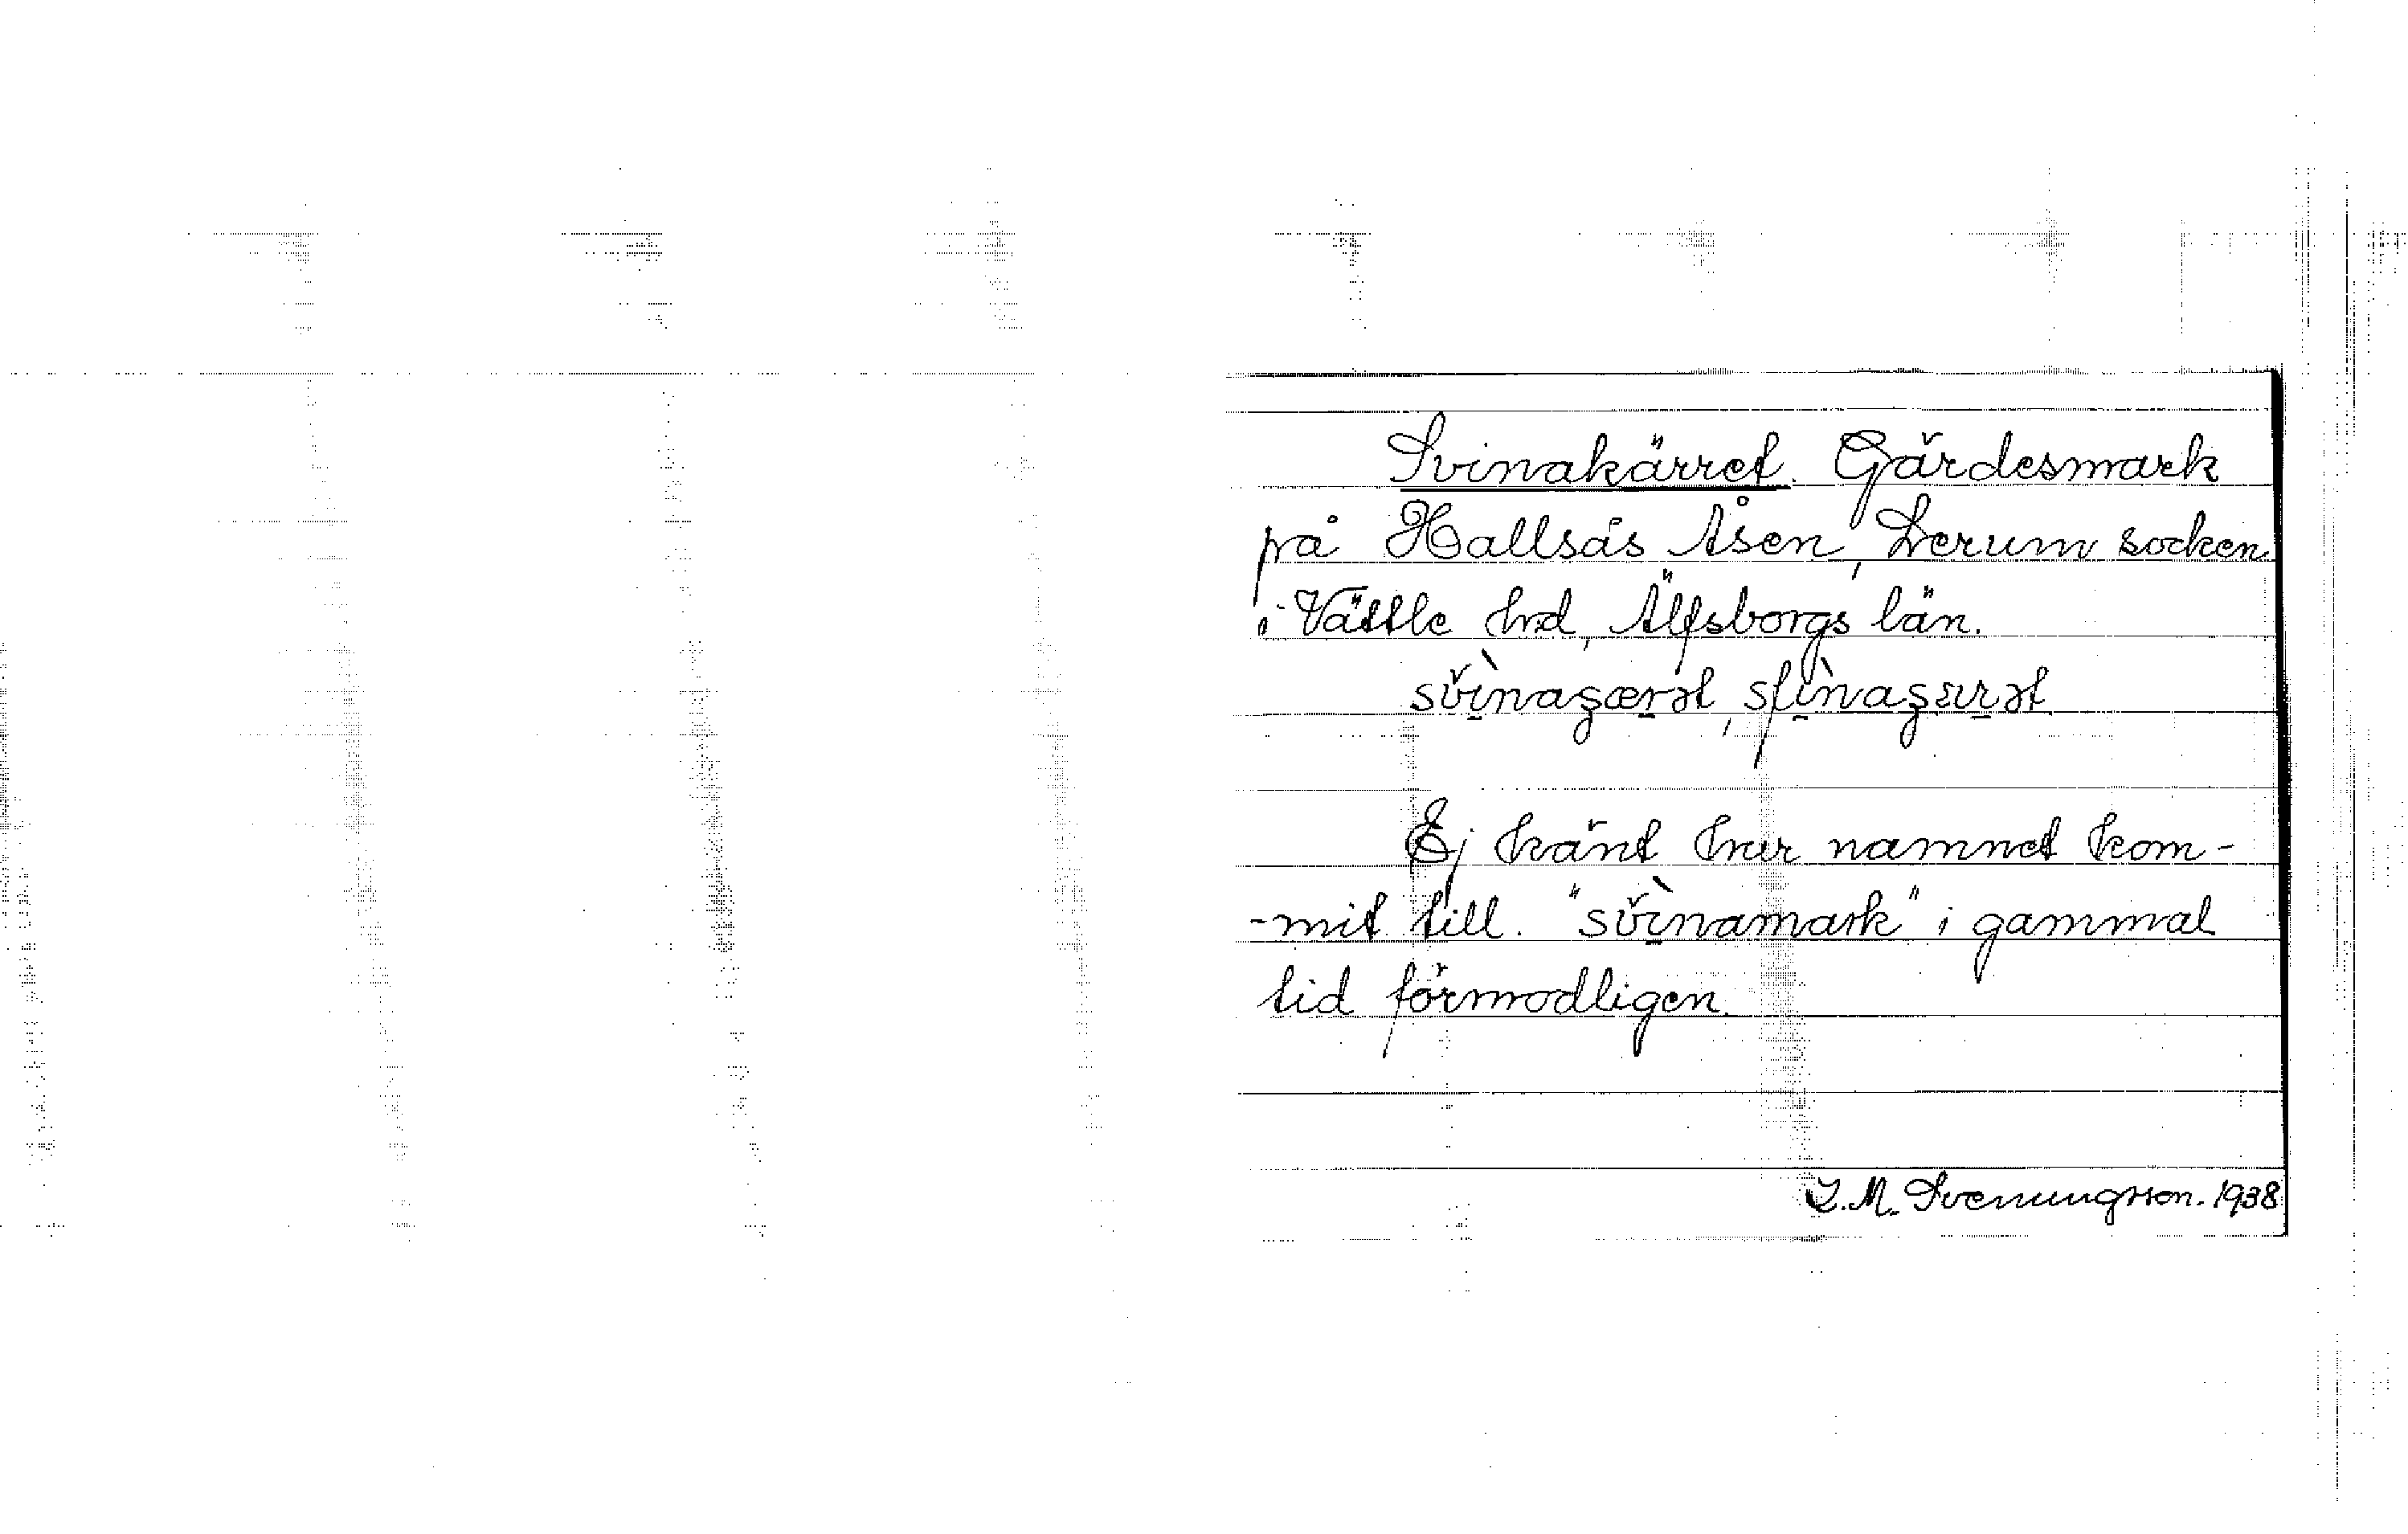 Svinakärret. Gärdesmark
på Hallsås Åsen, Lerum socken
i Vättle hrd, Älfsborgs län.
Ej känt hur namnet kom-
-mit till. "svinamark" i gammal
tid förmodligen.
J.M. Svenungsson. 1938